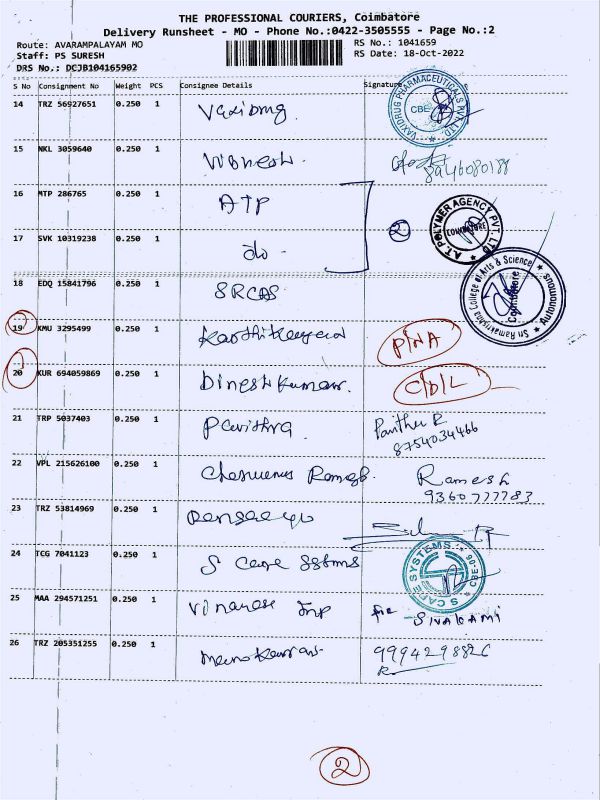 THE PROFESSIONAL COURIERS, Coimbatore
Delivery Runsheet - MO - Phone No.:0422-3505555 - Page No.:2
Route: AVARAMPALAYAM MO
RS No.: 1041659
Staff: PS SURESH
RS Date: 18-Oct-2022
DRS No.: DCJB104165902
S No Consignment No Weight PCS Consignee Details Signature
14 TRZ 56927651 0.250 1 Vaxidrug
VAXIDRUG PHARMACEUTICALS PVT. LTD. CBE
15 NKL 3059640 0.250 1
16 MTP 286765 0.250 1 ATP
A.T. POLYMER AGENCY PVT. LTD COIMBATORE
17 SVK 10319238 0.250 1 do - 2
18 EDQ 15841796 0.250 1 SRCAS
Sri Ramakrishna College of Arts & Science Autonomous Coimbatore
19 KMU 3295499 0.250 1 Karthikeyan P/NA
20 KUR 694059869 0.250 1 Dinesh Kumar. C/D/L
21 TRP 5037403 0.250 1 Pavithra
8754034466
22 VPL 215626100 0.250 1 Ramesh
9360777783
23 TRZ 53814969 0.250 1
24 TCG 7041123 0.250 1 S Cape Sstms
S CAPE SYSTEMS CBE-06
25 MAA 294571251 0.250 1 for SIVAKAMI
26 TRZ 205351255 0.250 1
2